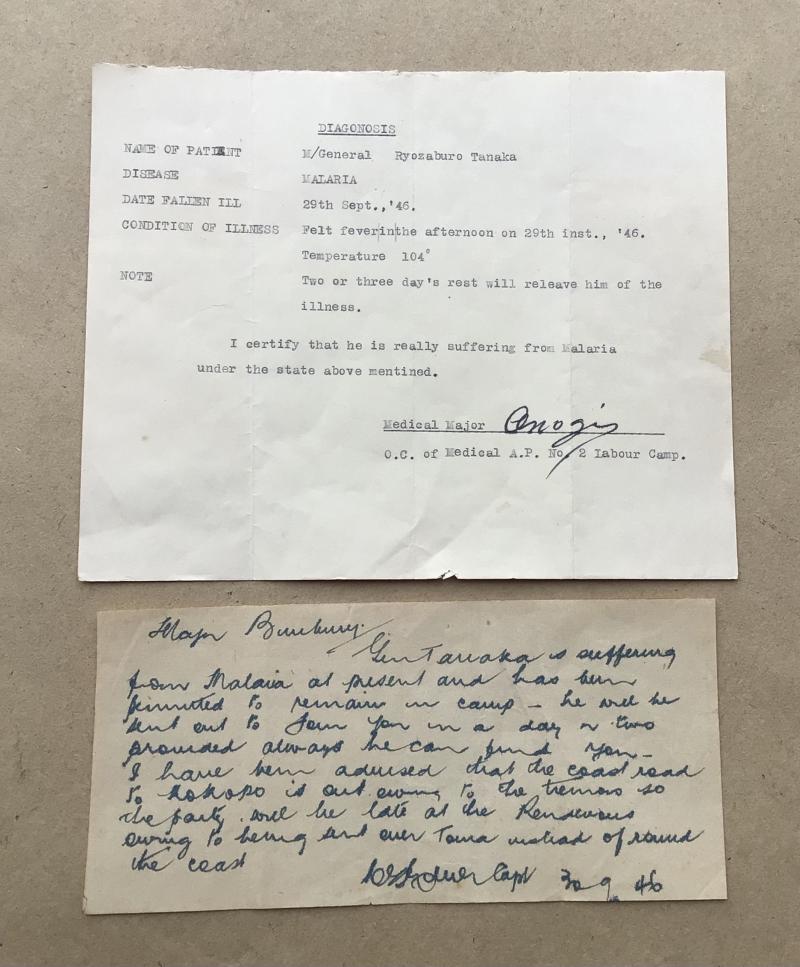 DIAGONOSIS
NAME OF PATIENT M/General Ryozaburo Tanaka
DISEASE MALARIA
DATE FALLEN ILL 29th Sept.,'46.
CONDITION OF ILLNESS Felt fever in the afternoon on 29th inst., '46.
Temperature 104°
NOTE Two or three day's rest will releave him of the
illness.
I certify that he is really suffering from Malaria
under the state above mentined.
Medical Major
O.C. of Medical A.P. No. 2 Labour Camp.
Major Bunbury.
Gen Tanaka is suffering
from Malaria at present and has been
permitted to remain in camp – he will be
sent out to join you in a day or two
provided always he can find you –
I have been advised that the coast road
to Kokopo is out owing to the tremors so
the party will be late at the Rendevous
owing to being sent over Toma instead of round
the coast
Capt 30 9 46